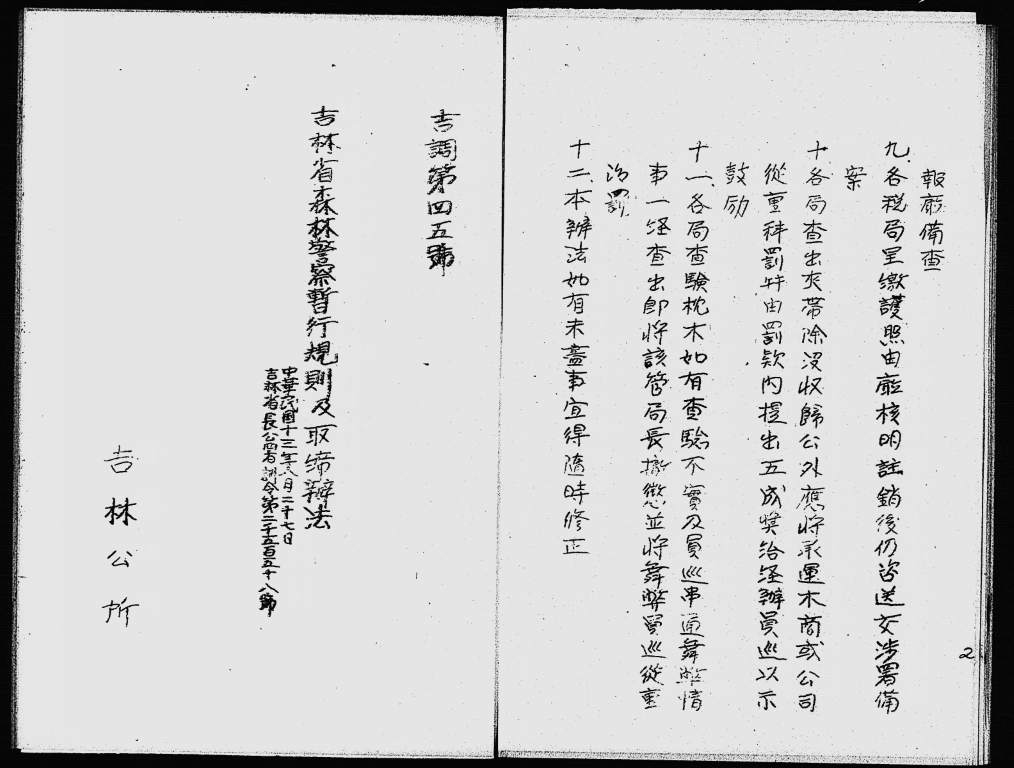 報廳備查
九、各稅局呈繳護照由廳核明註銷後仍咨送交涉署備
案
十、各局查出夾帶除沒收歸公外應將承運木商或公司
從重科罰並由罰欵內提出五成獎給經辦員巡以示
鼓励
十一、各局查驗枕木如有查驗不實及員巡串通舞弊情
事一經查出即將該管局長撤懲並將舞弊員巡從重
治罰
十二、本辦法如有未盡事宜得隨時修正
2
吉調第四五號
吉林省森林警察暫行規則及取締辦法
中華民國十三年 月二十七日
吉林省長公署訓令第二千五百五十八號
吉林公所